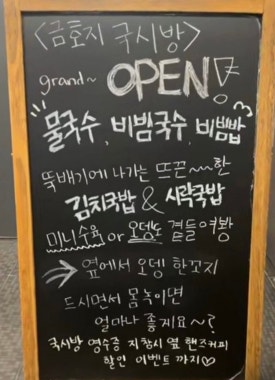 <금호지 국시방>
grand~ OPEN!
물국수, 비빔국수, 비빔밥
뚝배기에 나가는 뜨끈~~한
김치국밥 & 시락국밥
미니수육 or 오뎅도 곁들여봥
→ 옆에서 오뎅 한꼬지
드시면서 몸녹이면
얼마나 좋게요~?
국시방 영수증 지참시 옆 핸즈커피
할인 이벤트 까지♡